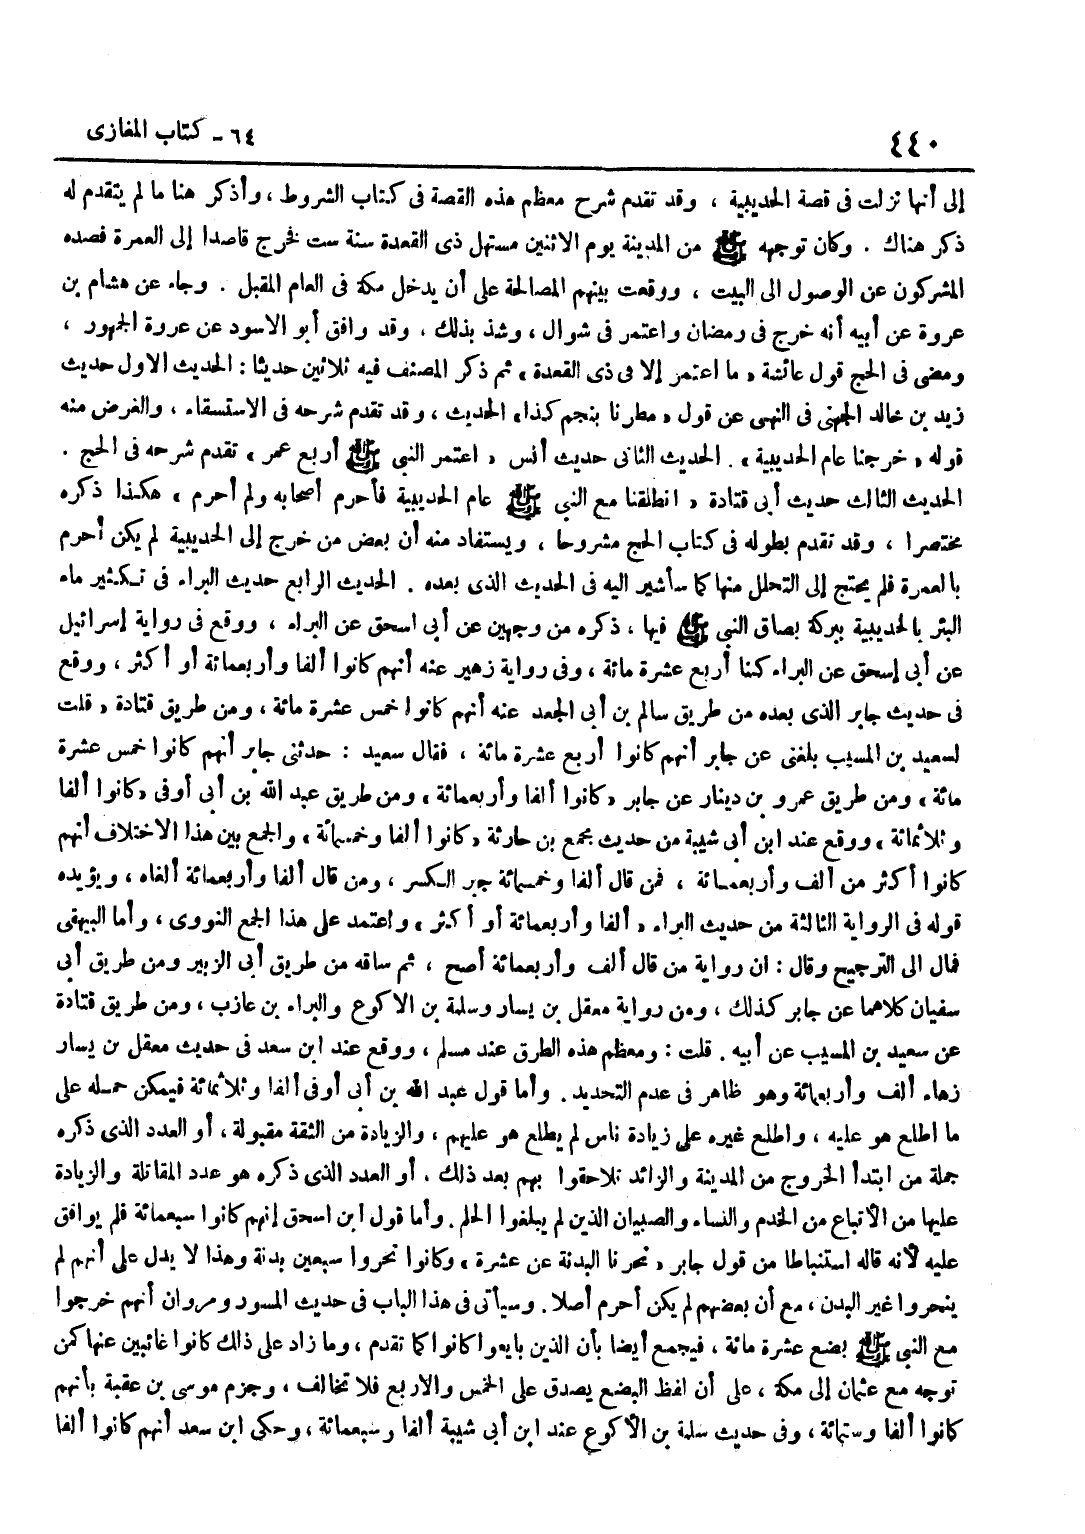 ٤٤٠ ٦٤ - كتاب المغازى
إلى أنها نزلت فى قصة الحديبية ، وقد تقدم شرح معظم هذه القصة فى كتاب الشروط ، وأذكر هنا ما لم يتقدم له
ذكر هناك . وكان توجهه ﷺ من المدينة يوم الاثنين مستهل ذى القعدة سنة ست فخرج قاصدا إلى العمرة فصده
المشركون عن الوصول الى البيت ، ووقعت بينهم المصالحة على أن يدخل مكة فى العام المقبل . وجاء عن هشام بن
عروة عن أبيه أنه خرج فى رمضان واعتمر فى شوال ، وشذ بذلك ، وقد وافق أبو الاسود عن عروة الجمهور ،
ومضى فى الحج قول عائشة « ما اعتمر إلا فى ذى القعدة » ثم ذكر المصنف فيه ثلاثين حديثا : الحديث الاول حديث
زيد بن خالد الجهنى فى النهى عن قول « مطرنا بنجم كذا » الحديث ، وقد تقدم شرحه فى الاستسقاء ، والغرض منه
قوله « خرجنا عام الحديبية » . الحديث الثانى حديث أنس « اعتمر النبى ﷺ أربع عمر » تقدم شرحه فى الحج .
الحديث الثالث حديث أبى قتادة « انطلقنا مع النبى ﷺ عام الحديبية فأحرم أصحابه ولم أحرم » هكذا ذكره
مختصرا ، وقد تقدم بطوله فى كتاب الحج مشروحا ، ويستفاد منه أن بعض من خرج إلى الحديبية لم يكن أحرم
بالعمرة فلم يحتج إلى التحلل منها كما سأشير اليه فى الحديث الذى بعده . الحديث الرابع حديث البراء فى تكثير ماء
البئر بالحديبية ببركة بصاق النبى ﷺ فيها ، ذكره من وجهين عن أبى اسحق عن البراء ، ووقع فى رواية إسرائيل
عن أبى إسحق عن البراء كنا أربع عشرة مائة ، وفى رواية زهير عنه أنهم كانوا ألفا وأربعمائة أو أكثر ، ووقع
فى حديث جابر الذى بعده من طريق سالم بن أبى الجعد عنه أنهم كانوا خمس عشرة مائة ، ومن طريق قتادة « قلت
لسعيد بن المسيب بلغنى عن جابر أنهم كانوا أربع عشرة مائة ، فقال سعيد : حدثنى جابر أنهم كانوا خمس عشرة
مائة » ومن طريق عمرو بن دينار عن جابر « كانوا ألفا وأربعمائة » ومن طريق عبد الله بن أبى أوفى « كانوا ألفا
وثلاثمائة » ووقع عند ابن أبى شيبة من حديث مجمع بن حارثة « كانوا ألفا وخمسمائة » والجمع بين هذا الاختلاف أنهم
كانوا أكثر من ألف وأربعمائة ، فمن قال ألفا وخمسمائة جبر الكسر ، ومن قال ألفا وأربعمائة ألغاه ، ويؤيده
قوله فى الرواية الثالثة من حديث البراء « ألفا وأربعمائة أو أكثر » واعتمد على هذا الجمع النووى ، وأما البيهقى
فمال الى الترجيح وقال : ان رواية من قال ألف وأربعمائة أصح ، ثم ساقه من طريق أبى الزبير ومن طريق أبى
سفيان كلاهما عن جابر كذلك ، ومن رواية معقل بن يسار وسلمة بن الاكوع والبراء بن عازب ، ومن طريق قتادة
عن سعيد بن المسيب عن أبيه . قلت : ومعظم هذه الطرق عند مسلم ، ووقع عند ابن سعد فى حديث معقل بن يسار
زهاء ألف وأربعمائة وهو ظاهر فى عدم التحديد . وأما قول عبد الله بن أبى أوفى ألفا وثلاثمائة فيمكن حمله على
ما اطلع هو عليه ، واطلع غيره على زيادة ناس لم يطلع هو عليهم ، والزيادة من الثقة مقبولة ، أو العدد الذى ذكره
جملة من ابتدأ الخروج من المدينة والزائد تلاحقوا بهم بعد ذلك ، أو العدد الذى ذكره هو عدد المقاتلة والزيادة
عليها من الأتباع من الخدم والنساء والصبيان الذين لم يبلغوا الحلم . وأما قول ابن اسحق إنهم كانوا سبعمائة فلم يوافق
عليه لأنه قاله استنباطا من قول جابر « نحرنا البدنة عن عشرة » وكانوا نحروا سبعين بدنة وهذا لا يدل على أنهم لم
ينحروا غير البدن ، مع أن بعضهم لم يكن أحرم أصلا . وسيأتى فى هذا الباب فى حديث المسور ومروان أنهم خرجوا
مع النبى ﷺ بضع عشرة مائة ، فيجمع أيضا بأن الذين بايعوا كانوا كما تقدم ، وما زاد على ذلك كانوا غائبين عنها كمن
توجه مع عثمان إلى مكة ، على أن لفظ البضع يصدق على الخمس والاربع فلا تخالف ، وجزم موسى بن عقبة بأنهم
كانوا ألفا وستمائة ، وفى حديث سلمة بن الأكوع عند ابن أبى شيبة ألفا وسبعمائة ، وحكى ابن سعد أنهم كانوا ألفا